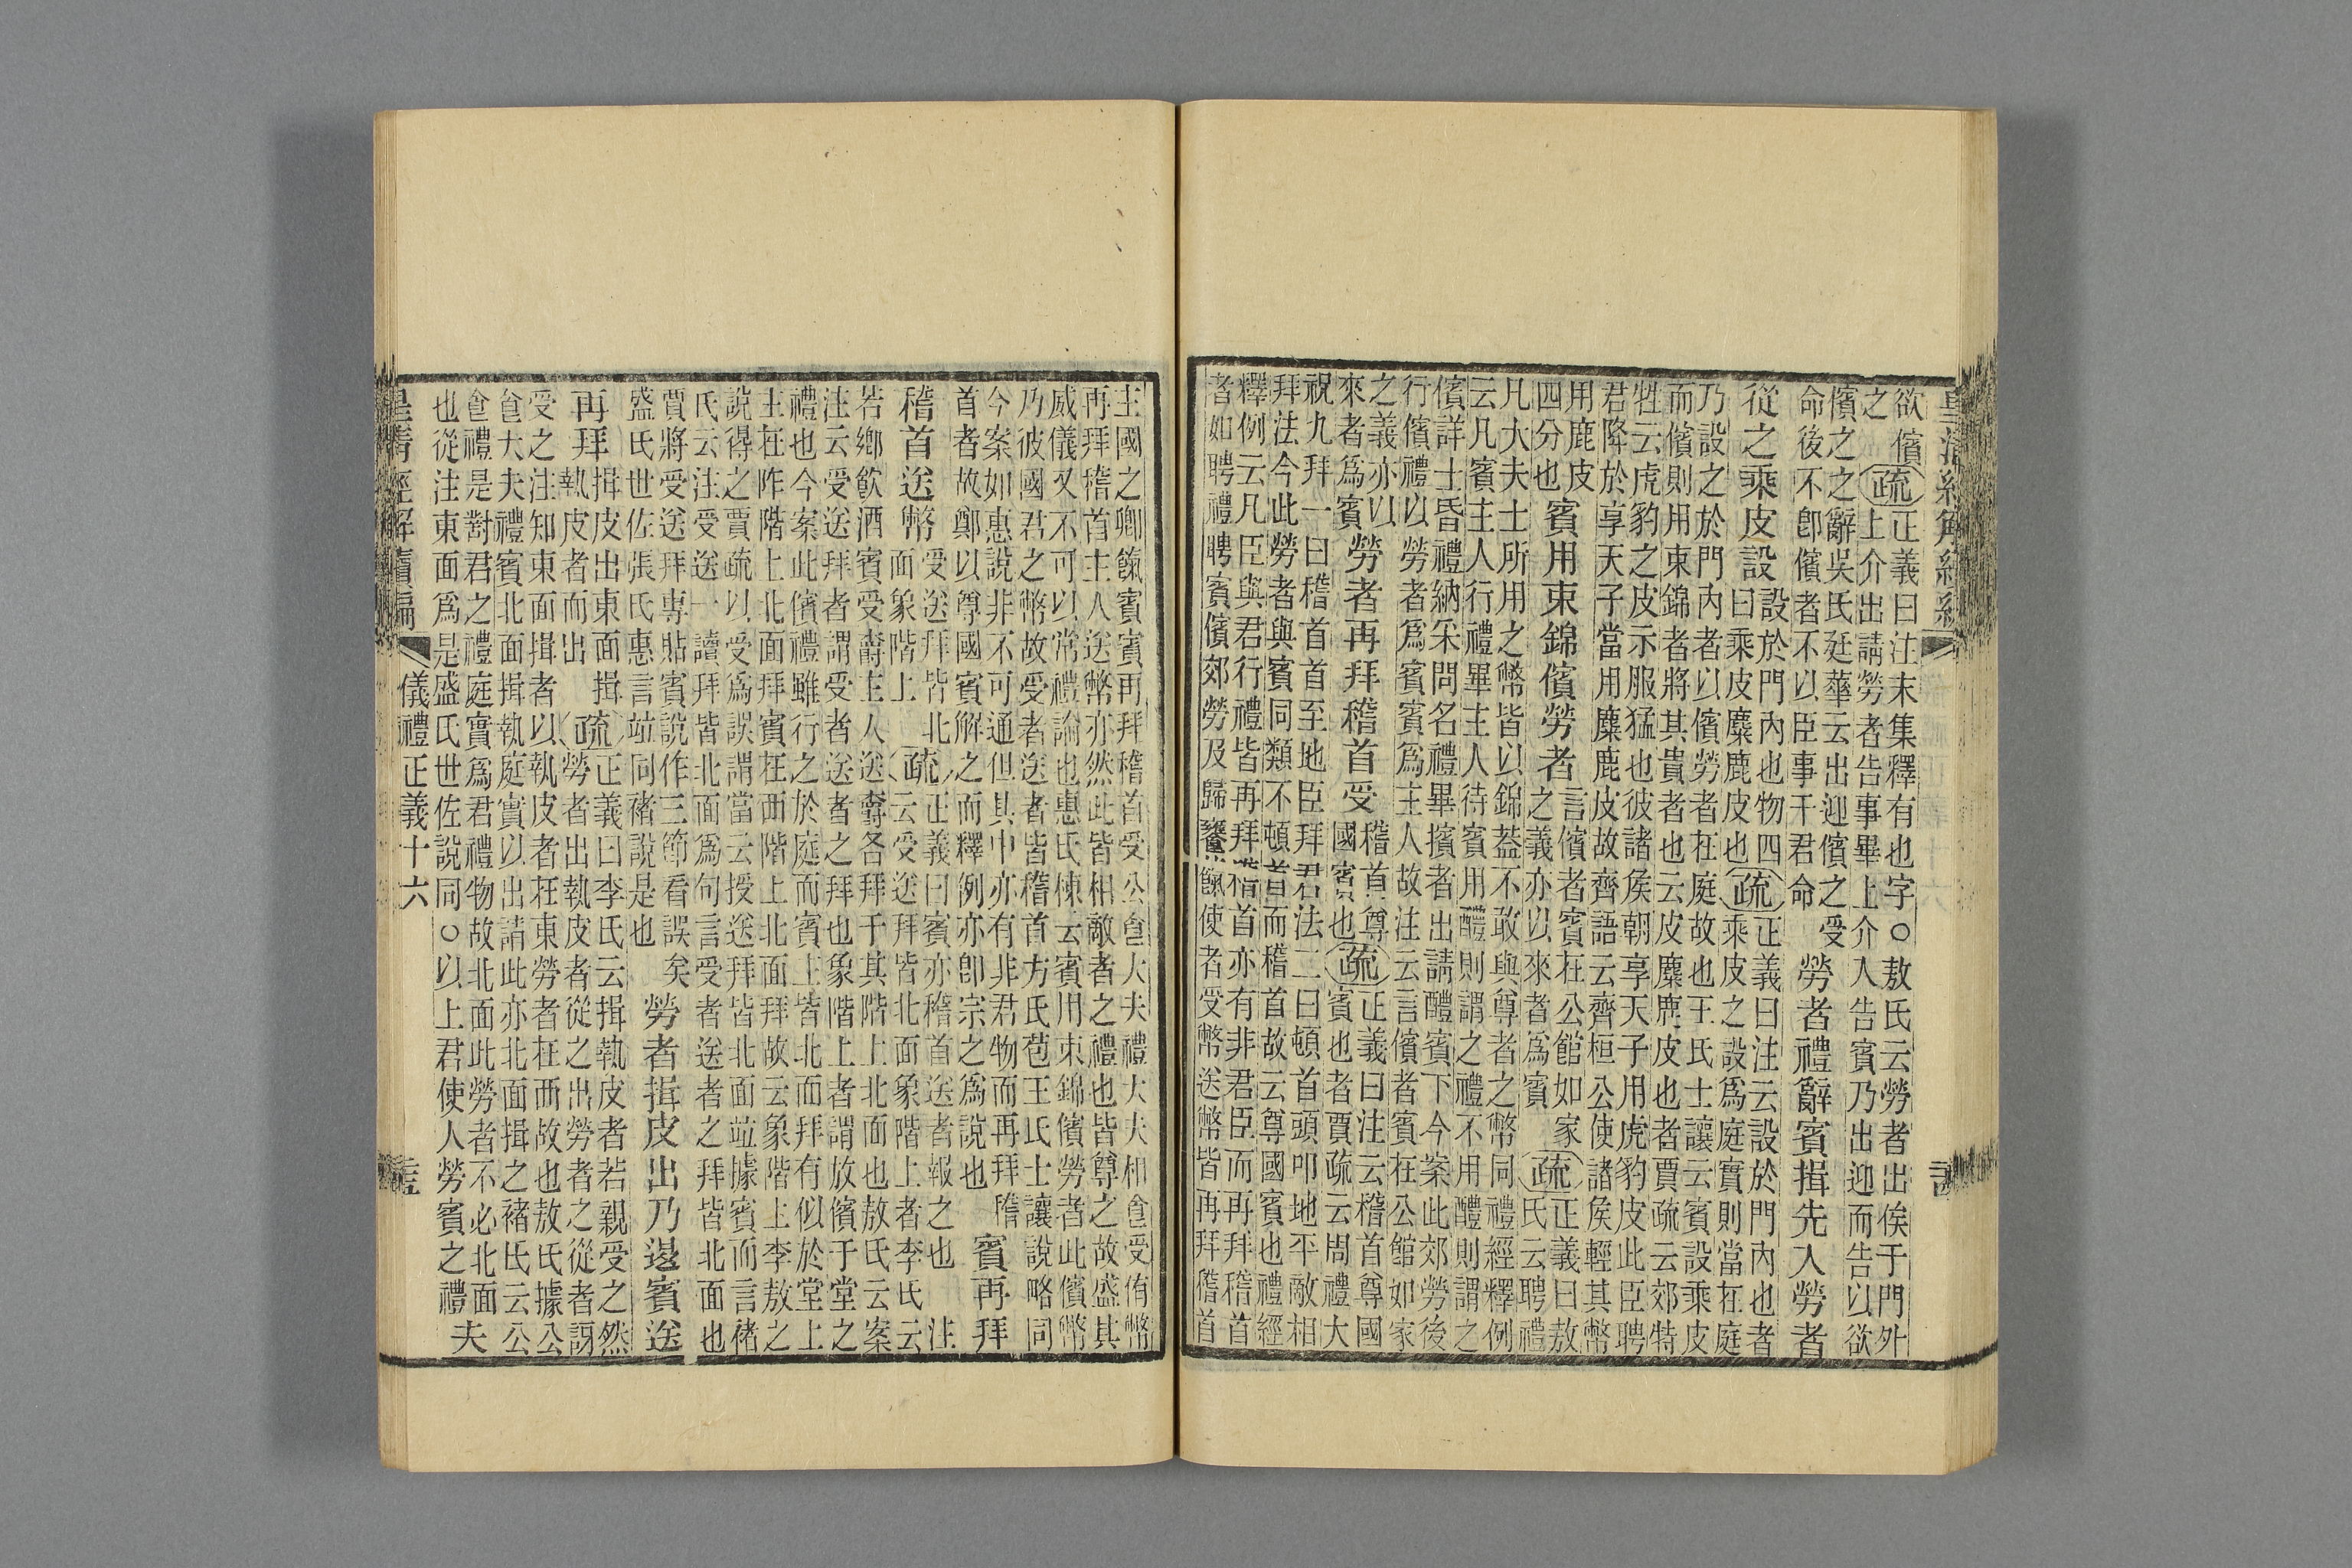 皇清經解續編
欲儐疏正義曰注末集釋有也字○敖氏云勞者出俟于門外
之上介出請勞者告事畢上介入告賓乃出迎而告以欲
儐之之辭吳氏廷華云出迎儐之受
命後不即儐者不以臣事干君命
勞者禮辭賓揖先入勞者
從之乘皮設
設於門內也物四
曰乘皮麋鹿皮也
疏正義曰注云設於門內也者
乘皮之設爲庭實則當在庭
乃設之於門內者以儐勞者在庭故也王氏士讓云賓設乘皮
而儐則用束錦者將其貴者也云皮麋鹿皮也者賈疏云郊特
牲云虎豹之皮示服猛也彼諸侯朝享天子用虎豹皮此臣聘
君降於享天子當用麋鹿皮故齊語云齊桓公使諸侯輕其幣
用鹿皮
四分也
賓用束錦儐勞者
言儐者賓在公館如家
之義亦以來者爲賓
疏正義曰敖
氏云聘禮
凡大夫士所用之幣皆以錦蓋不敢與尊者之幣同禮經釋例
云凡賓主人行禮畢主人待賓用醴則謂之禮不用醴則謂之
儐詳士昏禮納采問名禮畢擯者出請醴賓下今案此郊勞後
行儐禮以勞者爲賓賓爲主人故注云言儐者賓在公館如家
之義亦以
來者爲賓
勞者再拜稽首受
稽首尊
國賓也
疏正義曰注云稽首尊國
賓也者賈疏云周禮大
祝九拜一曰稽首首至地臣拜君法二曰頓首頭叩地平敵相
拜法今此勞者與賓同類不頓首而稽首故云尊國賓也禮經
釋例云凡臣與君行禮皆再拜稽首亦有非君臣而再拜稽首
者如聘禮聘賓儐郊勞及歸饔餼使者受幣送幣皆再拜稽首
主國之卿餼賓賓再拜稽首受公食大夫禮大夫相食受侑幣
再拜稽首主人送幣亦然此皆相敵者之禮也皆尊之故盛其
威儀又不可以常禮論也惠氏棟云賓用束錦儐勞者此儐幣
乃彼國君之幣故受者送者皆稽首方氏苞王氏士讓說略同
今案如惠說非不可通但其中亦有非君物而再拜稽
首者故鄭以尊國賓解之而釋例亦卽宗之爲說也
賓再拜
稽首送幣
受送拜皆北
面象階上
疏正義曰賓亦稽首送者報之也注
云受送拜皆北面象階上者李氏云
若鄉飮酒賓受爵主人送爵各拜于其階上北面也敖氏云案
注云受送拜者謂受者送者之拜也象階上者謂放儐于堂之
禮也今案此儐禮雖行之於庭而賓主皆北面拜有似於堂上
主在阼階上北面拜賓在西階上北面拜故云象階上李敖之
說得之賈疏以受爲誤謂當云授送拜皆北面竝據賓而言褚
氏云注受送一讀拜皆北面爲句言受者送者之拜皆北面也
賈將受送拜專貼賓說作三節看誤矣
盛氏世佐張氏惠言竝同褚說是也
勞者揖皮出乃退賓送
再拜
揖皮出東面揖
執皮者而出
疏正義曰李氏云揖執皮者若親受之然
勞者出執皮者從之出勞者之從者訝
受之注知東面揖者以執皮者在東勞者在西故也敖氏據公
食大夫禮賓北面揖執庭實以出請此亦北面揖之褚氏云公
食禮是對君之禮庭實爲君禮物故北面此勞者不必北面
也從注東面爲是盛氏世佐說同○以上君使人勞賓之禮
夫
皇清經解續編
儀禮正義十六